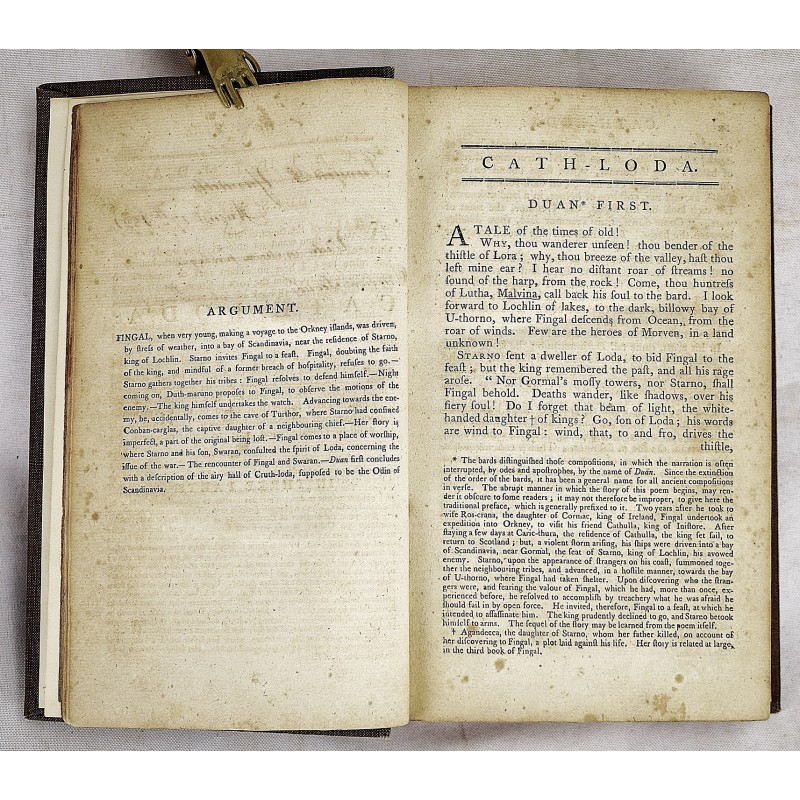 ARGUMENT.
FINGAL, when very young, making a voyage to the Orkney iſlands, was driven,
by ſtreſs of weather, into a bay of Scandinavia, near the reſidence of Starno,
king of Lochlin. Starno invites Fingal to a feaſt. Fingal, doubting the faith
of the king, and mindful of a former breach of hoſpitality, refuſes to go.—
Starno gathers together his tribes: Fingal reſolves to defend himſelf.—Night
coming on, Duth-maruno propoſes to Fingal, to obſerve the motions of the
enemy.—The king himſelf undertakes the watch. Advancing towards the ene-
my, he, accidentally, comes to the cave of Turthor, where Starno had confined
Conban-carglas, the captive daughter of a neighbouring chief.—Her ſtory is
imperfect, a part of the original being loſt.—Fingal comes to a place of worſhip,
where Starno and his ſon, Swaran, conſulted the ſpirit of Loda, concerning the
iſſue of the war.—The rencounter of Fingal and Swaran.—Duan firſt concludes
with a deſcription of the airy hall of Cruth-loda, ſuppoſed to be the Odin of
Scandinavia.
CATH-LODA.
DUAN* FIRST.
A TALE of the times of old!
WHY, thou wanderer unſeen! thou bender of the
thiſtle of Lora; why, thou breeze of the valley, haſt thou
left mine ear? I hear no diſtant roar of ſtreams! no
ſound of the harp, from the rock! Come, thou huntreſs
of Lutha, Malvina, call back his ſoul to the bard. I look
forward to Lochlin of lakes, to the dark, billowy bay of
U-thorno, where Fingal deſcends from Ocean, from the
roar of winds. Few are the heroes of Morven, in a land
unknown!
STARNO ſent a dweller of Loda, to bid Fingal to the
feaſt; but the king remembered the paſt, and all his rage
aroſe. “ Nor Gormal's moſſy towers, nor Starno, ſhall
Fingal behold. Deaths wander, like ſhadows, over his
fiery ſoul! Do I forget that beam of light, the white-
handed daughter † of kings? Go, ſon of Loda; his words
are wind to Fingal: wind, that, to and fro, drives the
thiſtle,
* The bards diſtinguiſhed thoſe compoſitions, in which the narration is often
interrupted, by odes and apoſtrophes, by the name of Duän. Since the extinction
of the order of the bards, it has been a general name for all ancient compoſitions
in verſe. The abrupt manner in which the ſtory of this poem begins, may ren-
der it obſcure to ſome readers; it may not therefore be improper, to give here the
traditional preface, which is generally prefixed to it. Two years after he took to
wife Ros-crana, the daughter of Cormac, king of Ireland, Fingal undertook an
expedition into Orkney, to viſit his friend Cathulla, king of Iniſtore. After
ſtaying a few days at Caric-thura, the reſidence of Cathulla, the king ſet ſail, to
return to Scotland; but, a violent ſtorm ariſing, his ſhips were driven into a bay
of Scandinavia, near Gormal, the ſeat of Starno, king of Lochlin, his avowed
enemy. Starno, upon the appearance of ſtrangers on his coaſt, ſummoned toge-
ther the neighbouring tribes, and advanced, in a hoſtile manner, towards the bay
of U-thorno, where Fingal had taken ſhelter. Upon diſcovering who the ſtran-
gers were, and fearing the valour of Fingal, which he had, more than once, ex-
perienced before, he reſolved to accompliſh by treachery what he was afraid he
ſhould fail in by open force. He invited, therefore, Fingal to a feaſt, at which he
intended to aſſaſſinate him. The king prudently declined to go, and Starno betook
himſelf to arms. The ſequel of the ſtory may be learned from the poem itſelf.
† Agandecca, the daughter of Starno, whom her father killed, on account of
her diſcovering to Fingal, a plot laid againſt his life. Her ſtory is related at large,
in the third book of Fingal.